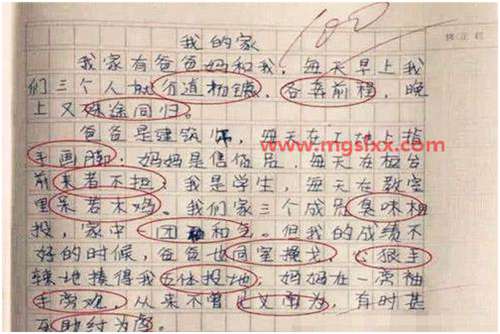 100
我的家
我家有爸爸妈和我，每天早上我
们三个人就分道扬镳，各奔前程，晚
上又殊途同归。
爸爸是建筑师，每天在工地上指
手画脚；妈妈是售货员，每天在柜台
www.mgslxx.com
前来者不拒；我是学生，每天在教室
里呆若木鸡。我们家三个成员臭味相
投，家中一团和气。但我的成绩不
好的时候，爸爸也同室操戈，心狠手
辣地揍得我五体投地；妈妈在一旁袖
手旁观，从来不曾见义勇为，有时甚
至助纣为虐